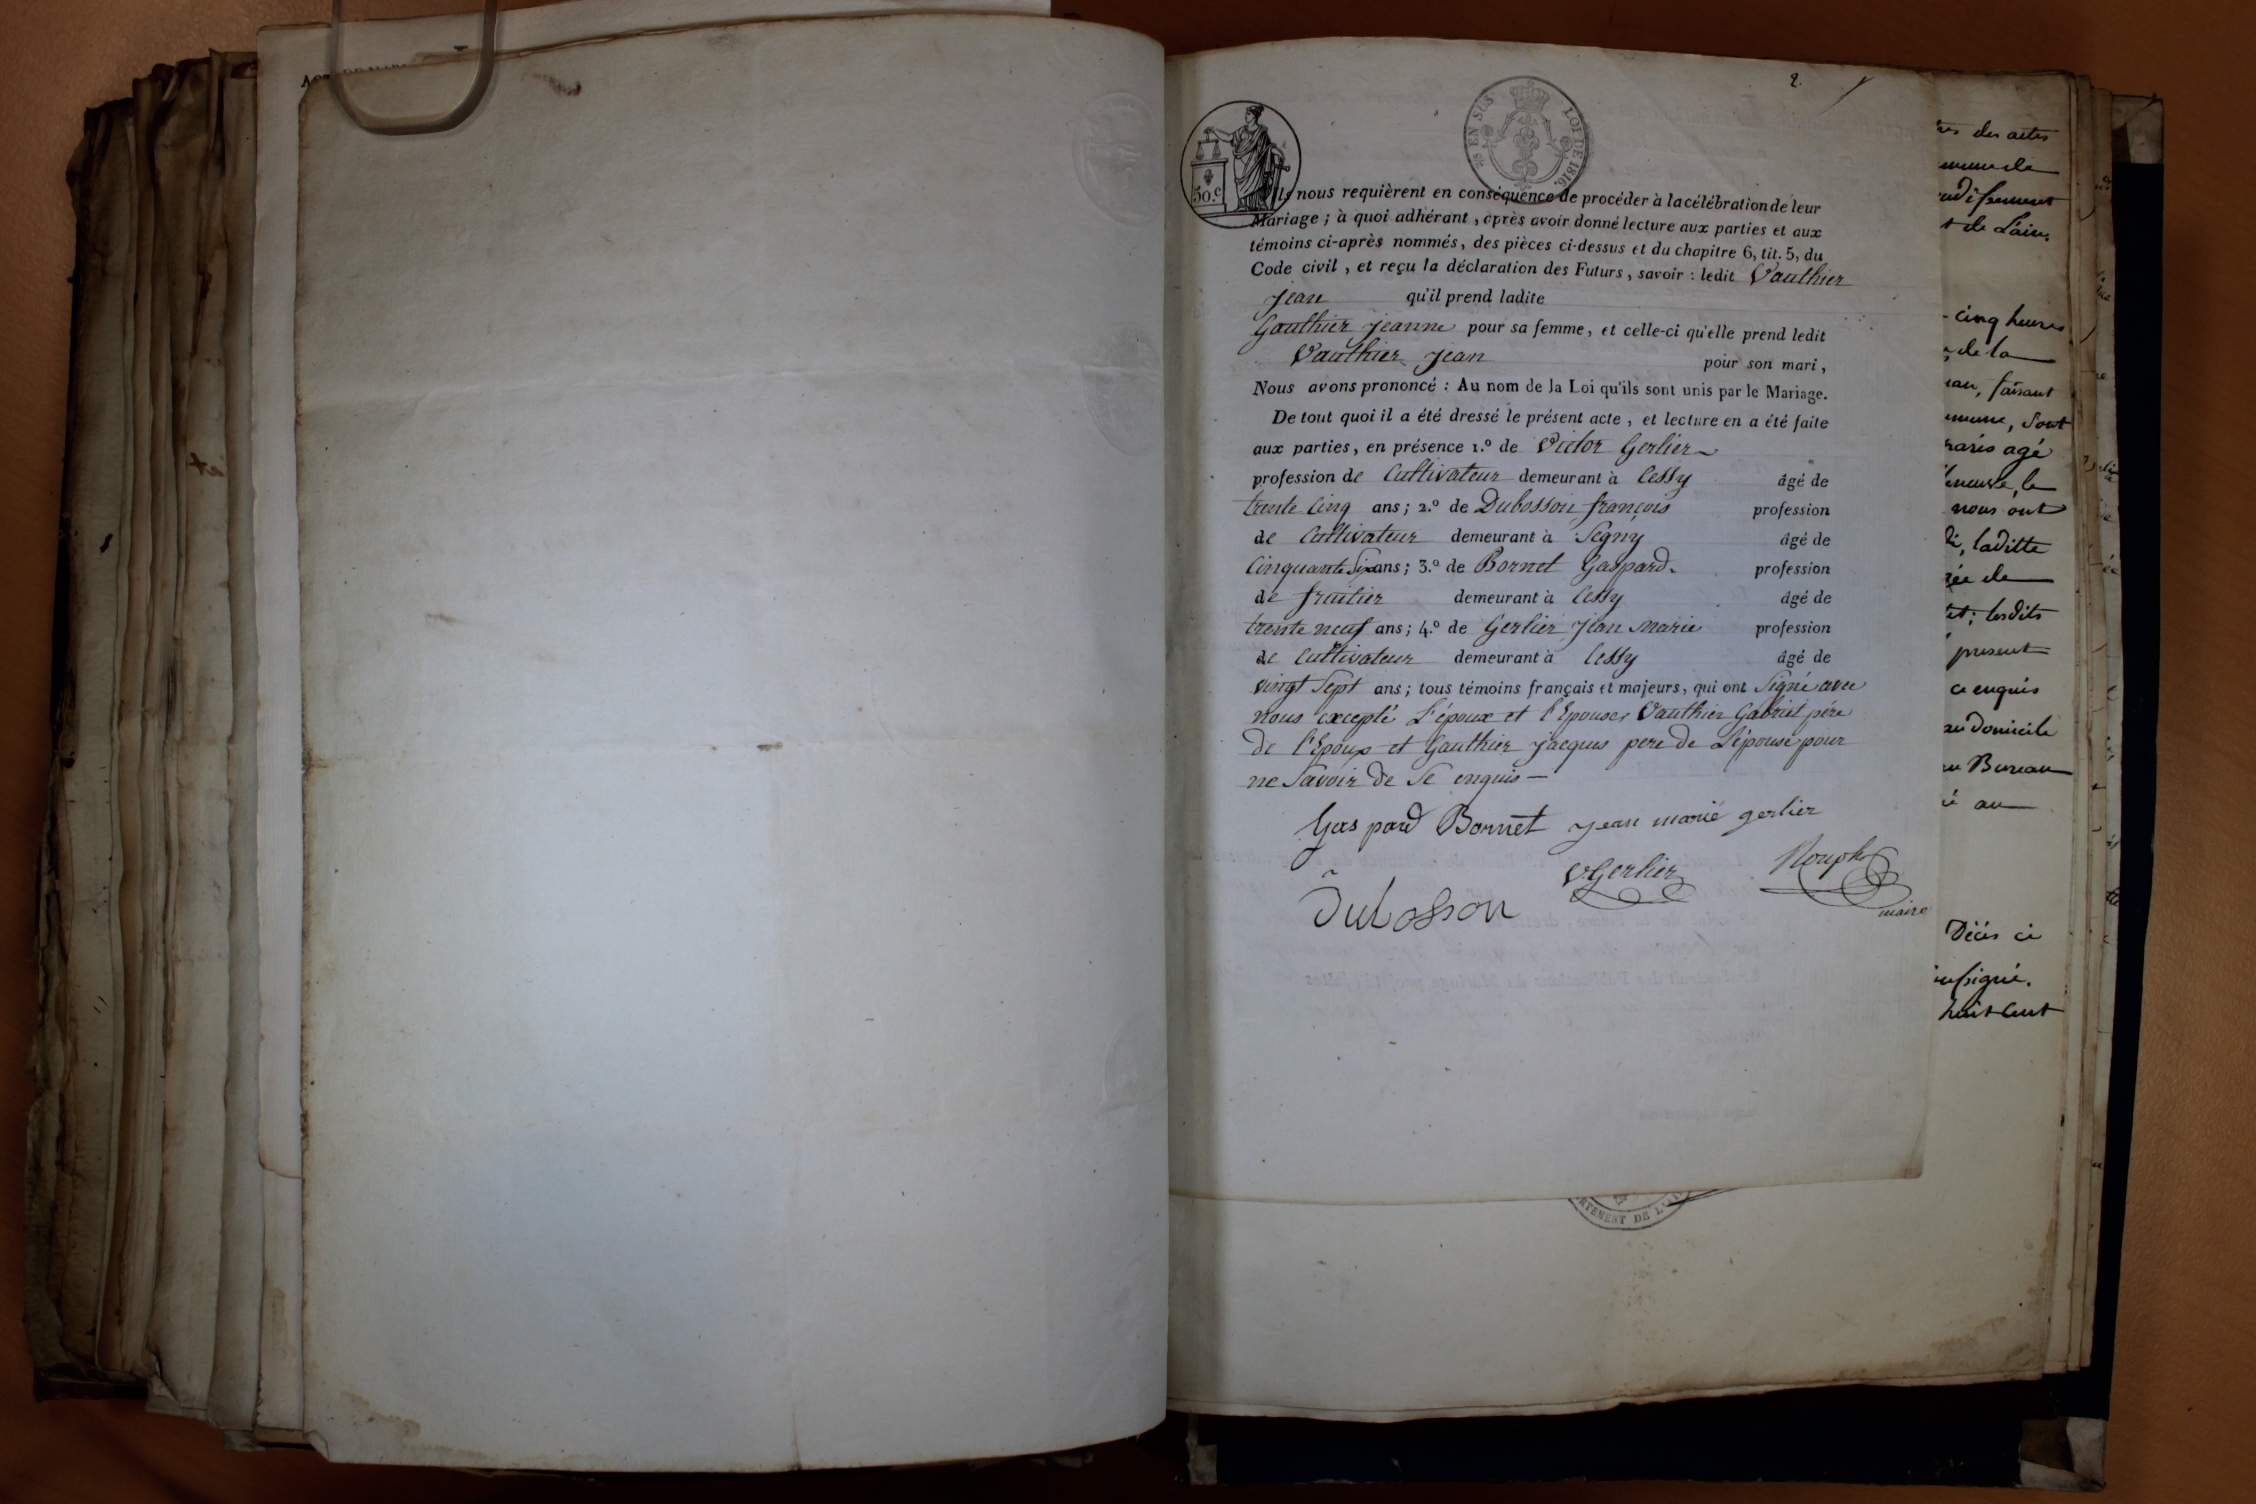 2.
50.c
¾ EN SUS LOI DE 1816.
Ils nous requièrent en conséquence de procéder à la célébration de leur
Mariage ; à quoi adhérant, après avoir donné lecture aux parties et aux
témoins ci-après nommés, des pièces ci-dessus et du chapitre 6, tit. 5, du
Code civil, et reçu la déclaration des Futurs, savoir : ledit Vauthier
Jean qu'il prend ladite
Gauthier Jeanne pour sa femme, et celle-ci qu'elle prend ledit
Vauthier Jean pour son mari,
Nous avons prononcé : Au nom de la Loi qu'ils sont unis par le Mariage.
De tout quoi il a été dressé le présent acte, et lecture en a été faite
aux parties, en présence 1.º de Victor Gerlier
profession de Cultivateur demeurant à Cessy âgé de
trente Cinq ans ; 2.º de Dubosson françois profession
de Cultivateur demeurant à Segny âgé de
Cinquante Six ans ; 3.º de Bornet Gaspard. profession
de fruitier demeurant à Cessy âgé de
trente neuf ans ; 4.º de Gerlier Jean Marie profession
de Cultivateur demeurant à Cessy âgé de
vingt Sept ans ; tous témoins français et majeurs, qui ont Signé avec
nous excepté L'époux et l'Epouse, Vauthier Gabriel pére
de l'Epoux et Gauthier Jacques pere de L'épouse pour
ne Savoir de Ce enquis —
Gas pard Bornet Jean marie gerlier
V. Gerlier
Dubosson
maire
des actes
de Lain.
cinq heures
de la
faisant
Sont
agé
le
nous ont
laditte
de
lesdits
present
ce enquis
au domicile
Bureau
au
Décès ci
huit Cent
RTEMENT DE L'